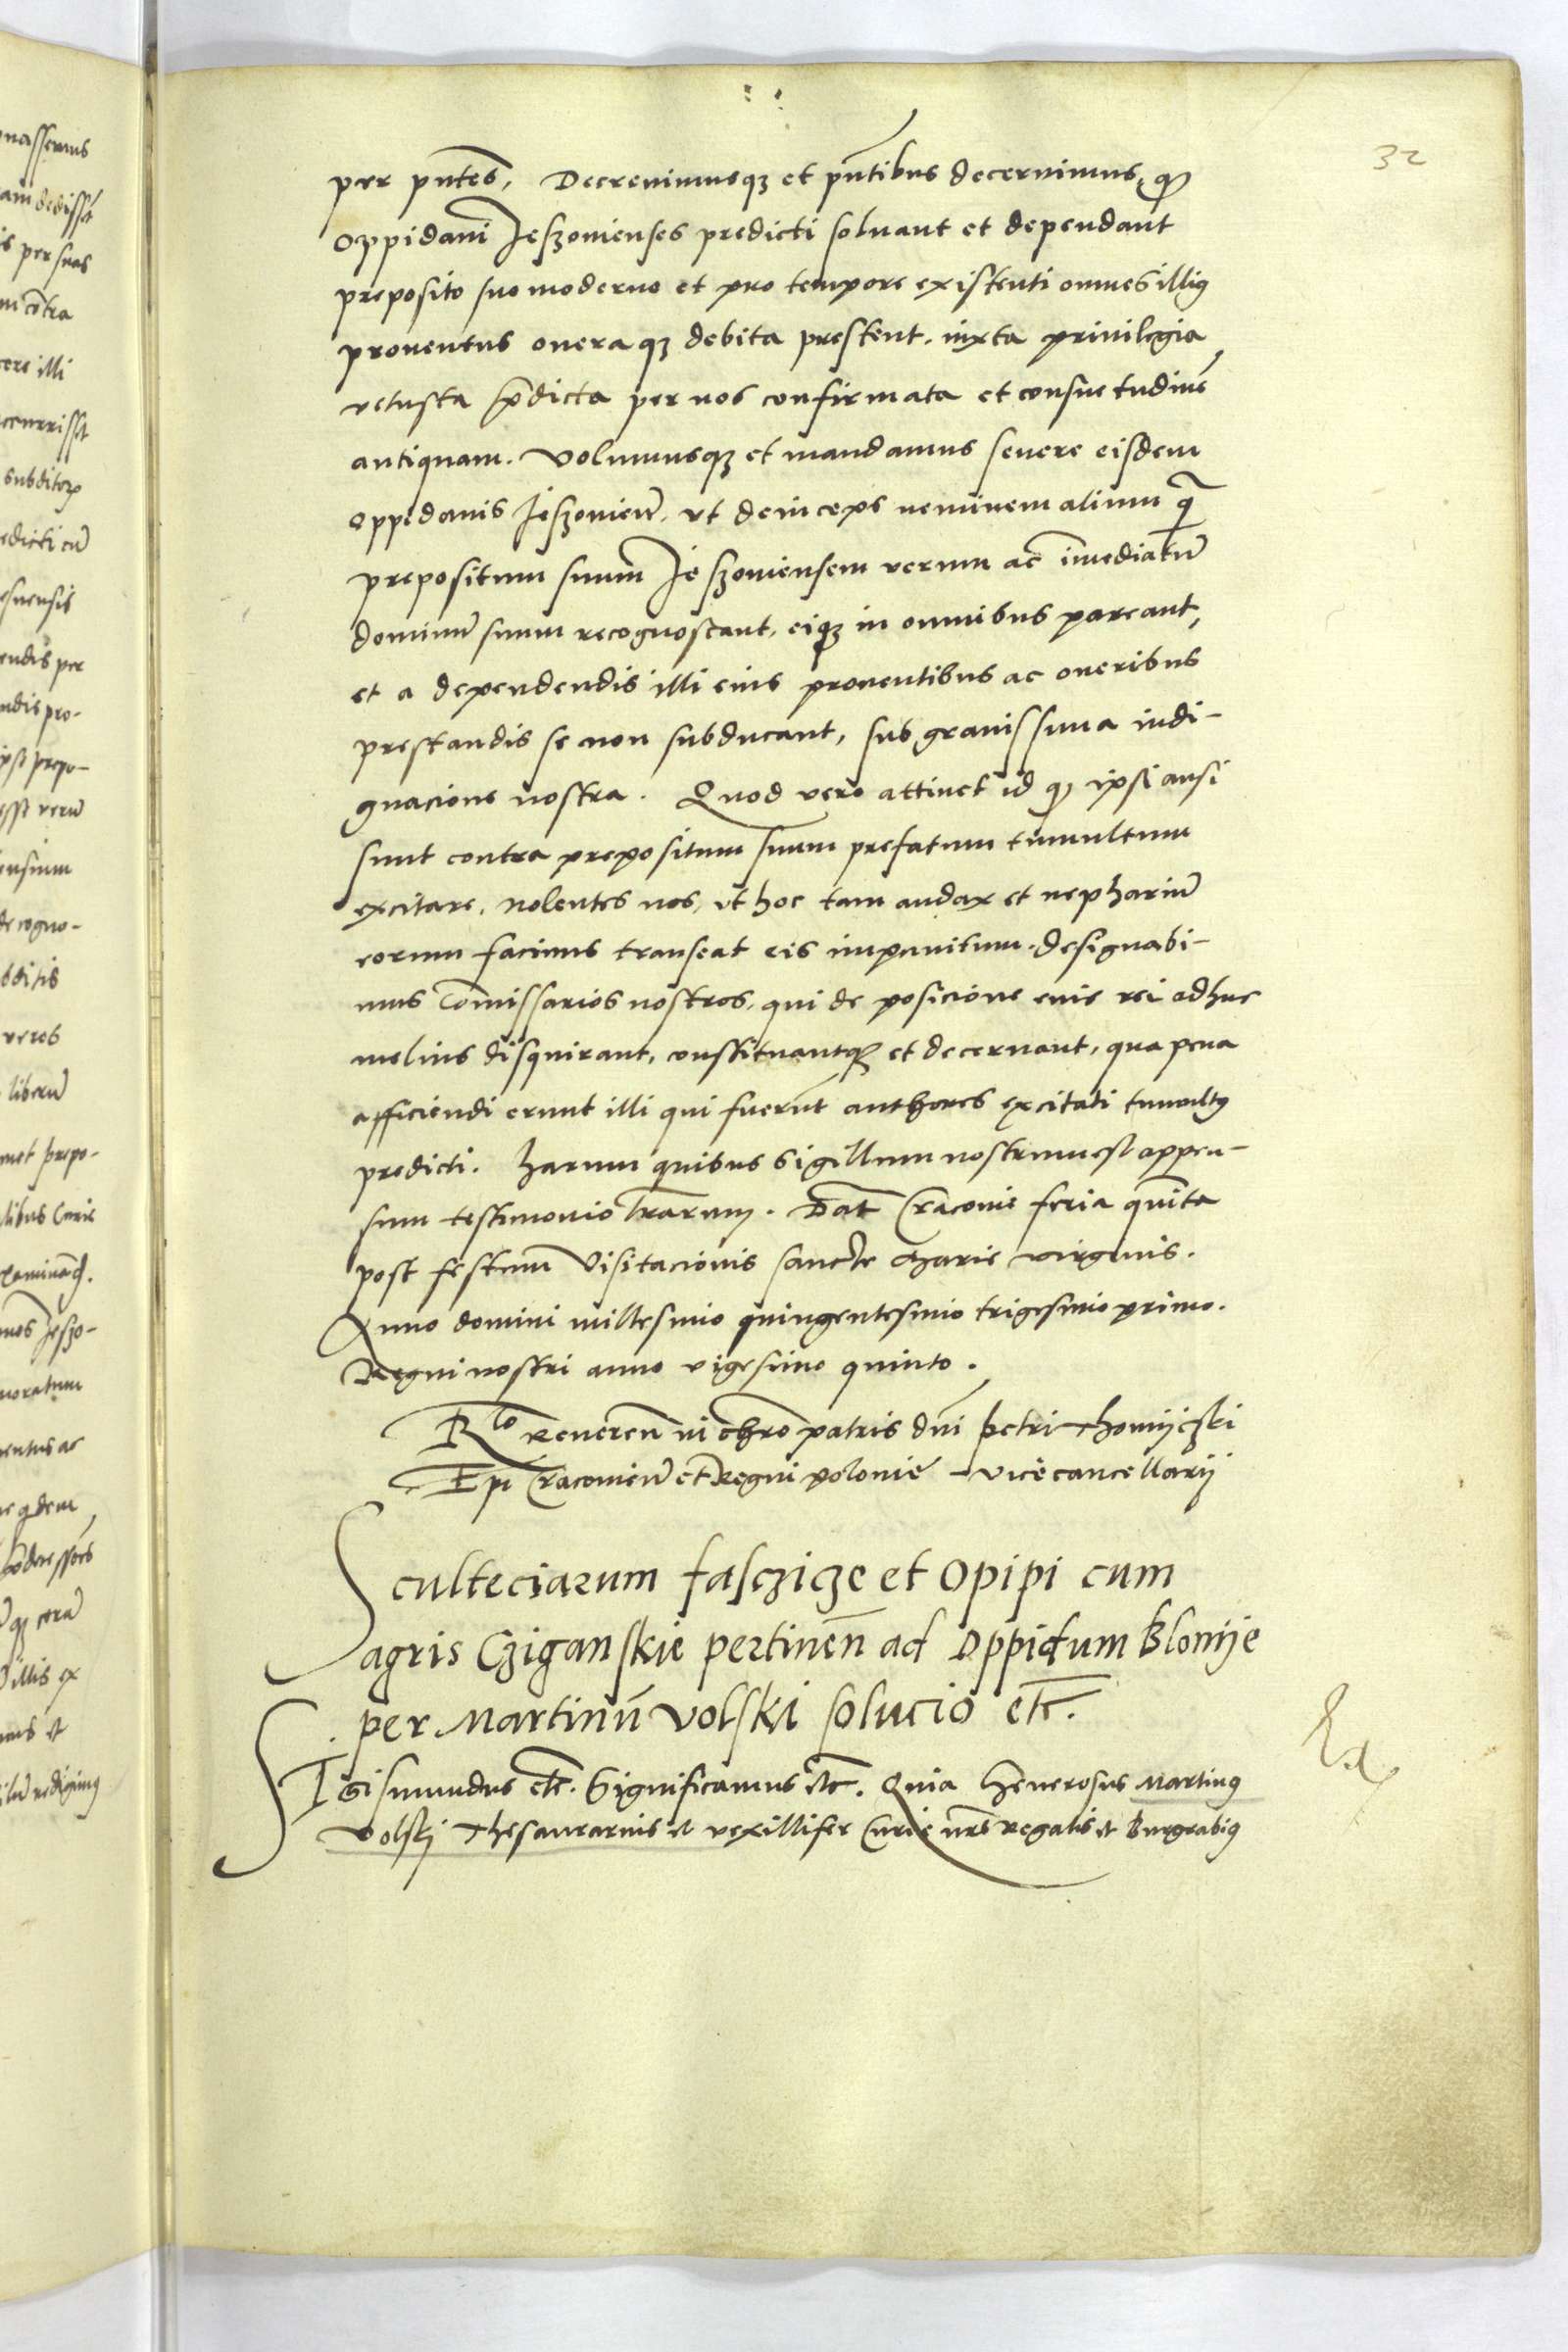 32
per pntes, Decrevimusqz et pntibus decernimus, qd
oppidani Jeszovienses predicti solvant et dependant
preposito suo moderno et pro tempore existenti omnes illius
proventus onera qz debita prestent. iuxta privilegia
vetusta pdicta per nos confirmata et consuetudine
antiquam. Volumusqz et mandamus severe eisdem
oppidanis Jeszovien, ut deinceps neminem alium q
prepositum suum Jeszoviensem verum ac imediatu
dominu suum recognoscant, eiqz in omnibus pareant,
et a dependendis illi eius proventibus ac oneribus
prestandis se non subducant, sub gravissima indi-
gnacione nostra. Quod vero attinet id qd ipsi ausi
sunt contra prepositum suum prefatum tumultum
excitare, nolentes nos, ut hoc tam audax et nephariu
eorum facinus transeat eis impunitum. designabi-
mus Comissarios nostros, qui de posicione eius rei adhuc
melius disquirant, constituantqz et decernant, qua pena
afficiendi erunt illi qui fuerunt authores excitati tumultus
predicti. Harum quibus Sigillum nostrum est appen-
sum testimonio lrarum. Dat Cracovie feria quinta
post festum Visitacionis sancte Marie virginis.
Anno domini millesimo quingentesimo trigesimo primo.
Regni nostri anno vigesimo quinto.
Rlo Reveren in chro patris dni Petri Thomijczki
Epi Cracovien et Regni polonie vicecancellarij
Sculteciarum fasczicze et Opipi cum
agris Cziganskie pertinen ad Oppidum Blonije
per Martinu Volski solucio etc.
SIgismundus etc. Significamus etc. Quia Generosus Martinus
Volski Thesaurarius et vexillifer Curie nre Regalis et Burgrabius